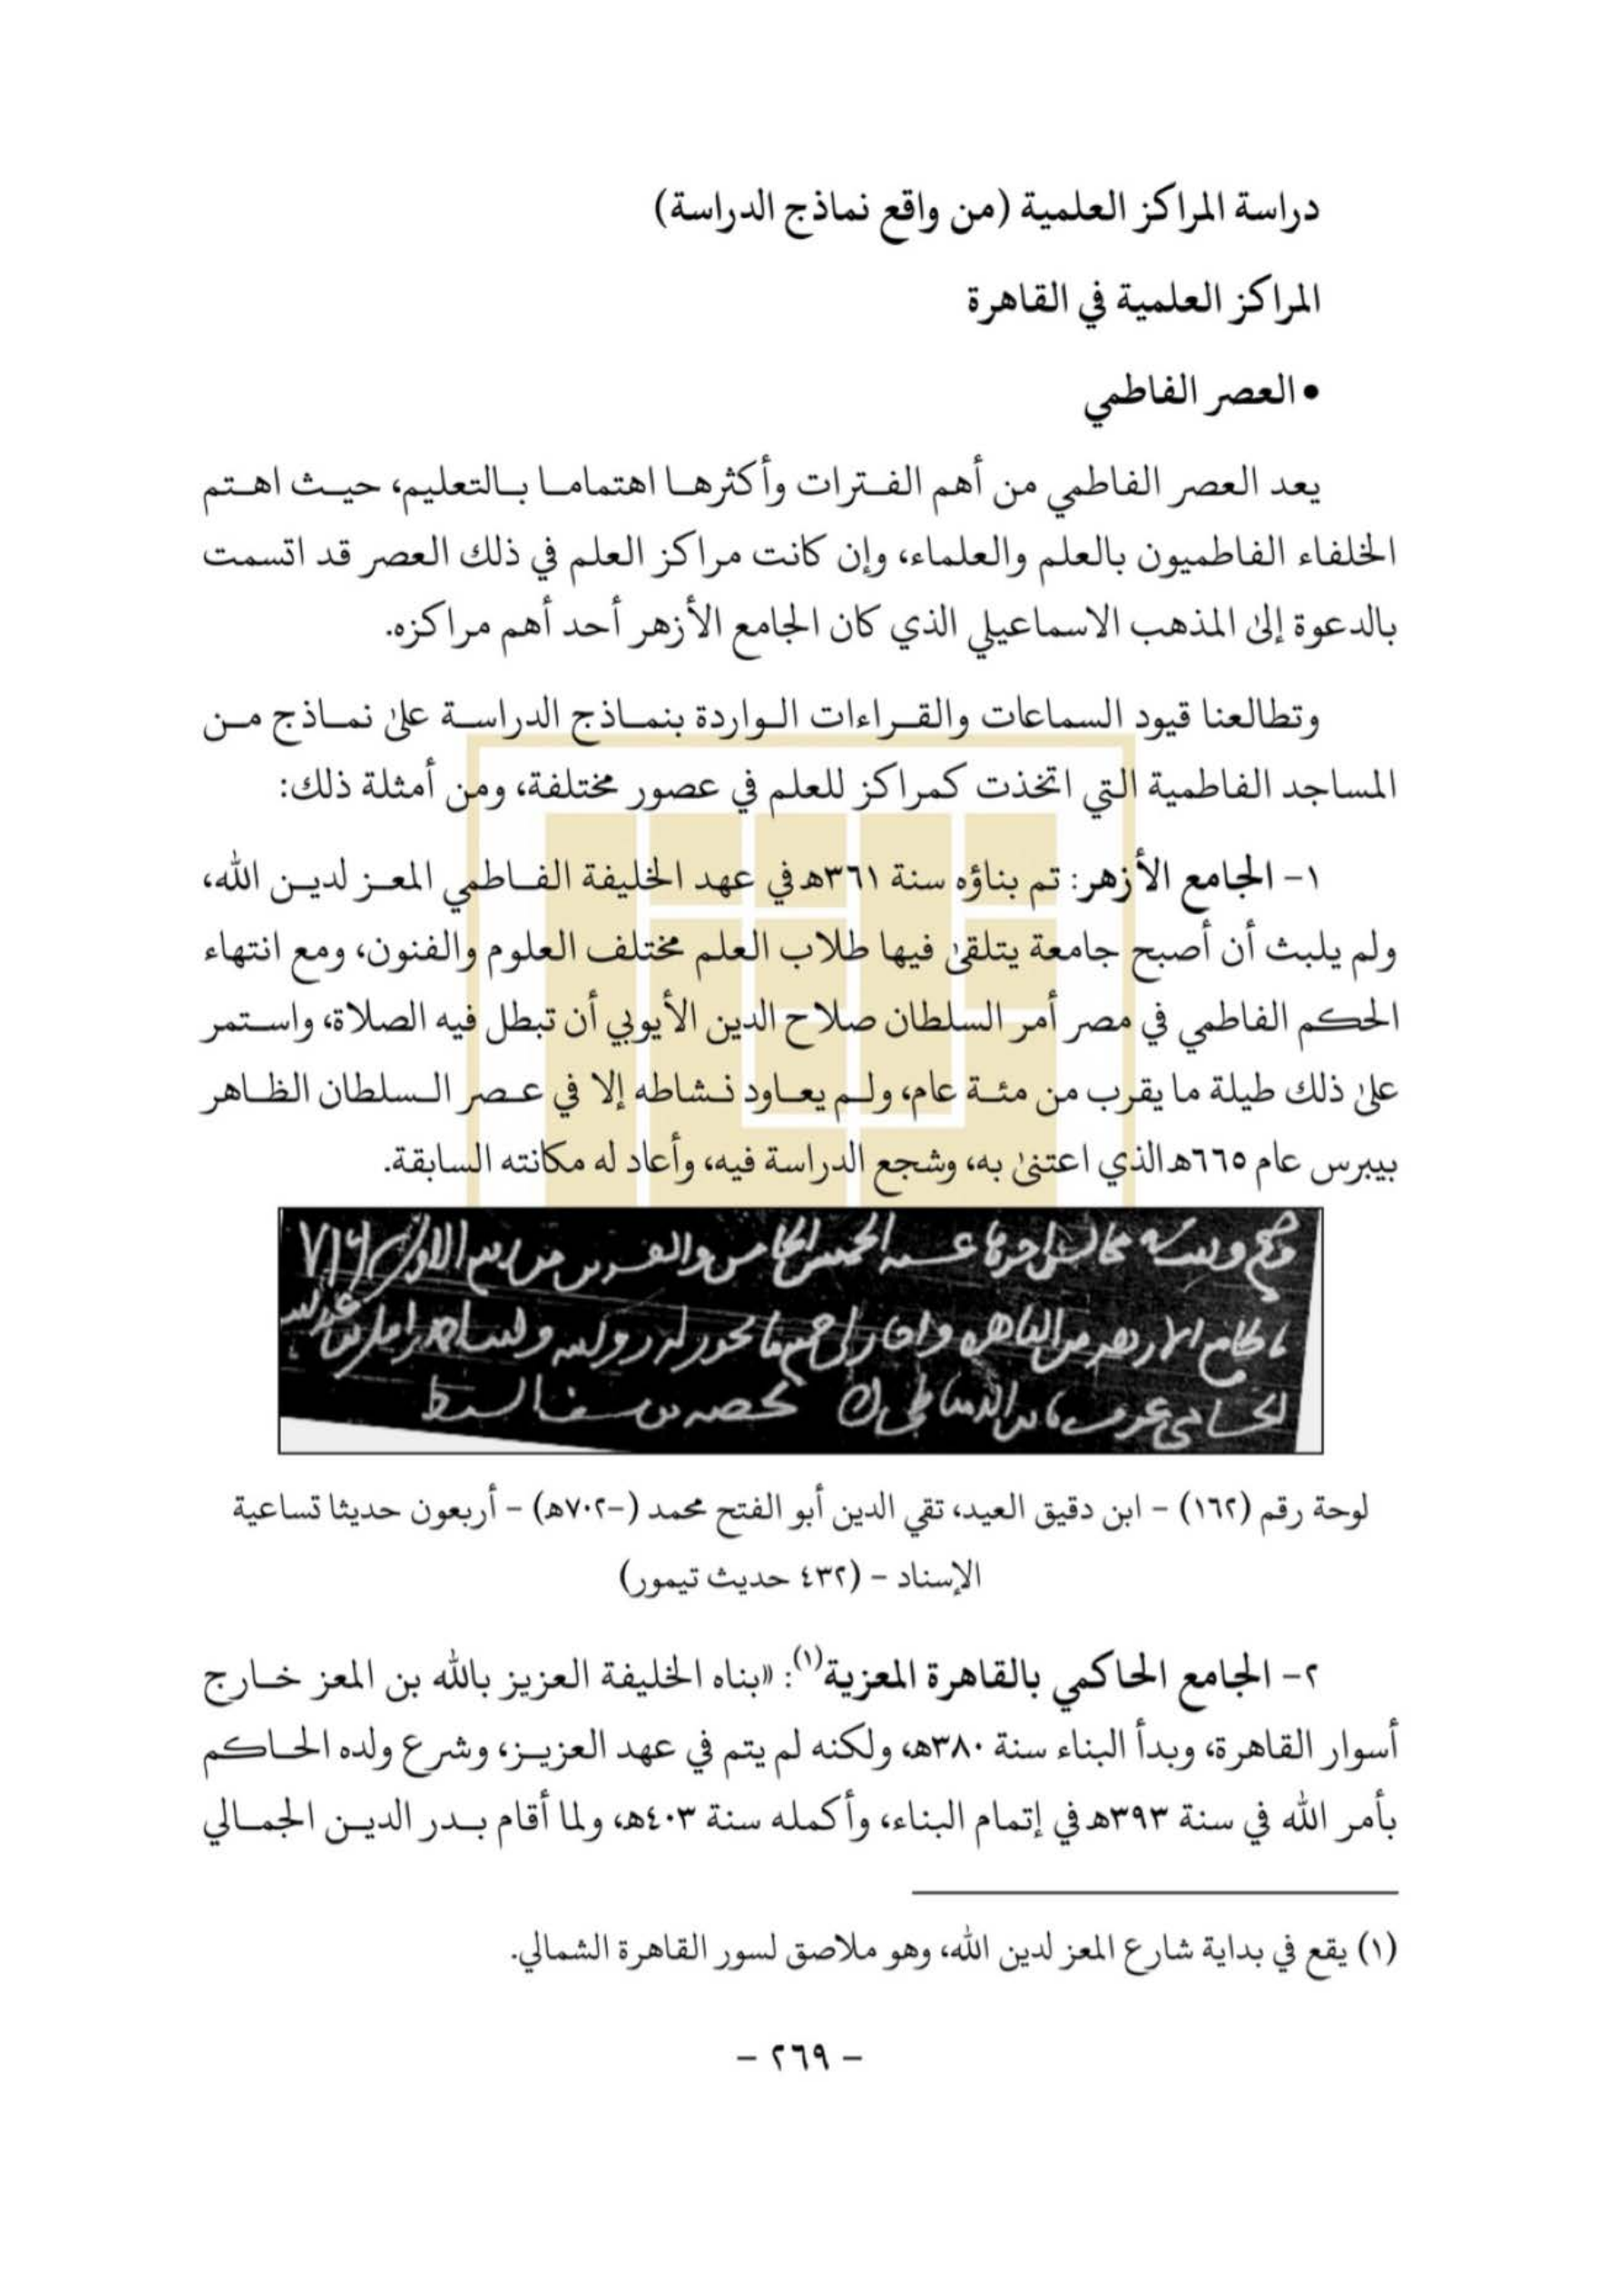 دراسة المراكز العلمية (من واقع نماذج الدراسة)
المراكز العلمية في القاهرة
• العصر الفاطمي
يعد العصر الفاطمي من أهم الفترات وأكثرها اهتماما بالتعليم، حيث اهتم
الخلفاء الفاطميون بالعلم والعلماء، وإن كانت مراكز العلم في ذلك العصر قد اتسمت
بالدعوة إلى المذهب الاسماعيلي الذي كان الجامع الأزهر أحد أهم مراكزه.
وتطالعنا قيود السماعات والقراءات الواردة بنماذج الدراسة على نماذج من
المساجد الفاطمية التي اتخذت كمراكز للعلم في عصور مختلفة، ومن أمثلة ذلك:
١- الجامع الأزهر: تم بناؤه سنة ٣٦١هـ في عهد الخليفة الفاطمي المعز لدين الله،
ولم يلبث أن أصبح جامعة يتلقى فيها طلاب العلم مختلف العلوم والفنون، ومع انتهاء
الحكم الفاطمي في مصر أمر السلطان صلاح الدين الأيوبي أن تبطل فيه الصلاة، واستمر
على ذلك طيلة ما يقرب من مئة عام، ولم يعاود نشاطه إلا في عصر السلطان الظاهر
بيبرس عام ٦٦٥هـ الذي اعتنى به، وشجع الدراسة فيه، وأعاد له مكانته السابقة.
الخميس الخامس والعشرين من ربيع الاول
بالجامع الازهر من القاهرة واجاز لي جميع ما يجوز له روايته
لوحة رقم (١٦٢) - ابن دقيق العيد، تقي الدين أبو الفتح محمد (-٧٠٢هـ) - أربعون حديثا تساعية
الإسناد - (٤٣٢ حديث تيمور)
٢- الجامع الحاكمي بالقاهرة المعزية(١): «بناه الخليفة العزيز بالله بن المعز خارج
أسوار القاهرة، وبدأ البناء سنة ٣٨٠هـ، ولكنه لم يتم في عهد العزيز، وشرع ولده الحاكم
بأمر الله في سنة ٣٩٣هـ في إتمام البناء، وأكمله سنة ٤٠٣هـ، ولما أقام بدر الدين الجمالي
(١) يقع في بداية شارع المعز لدين الله، وهو ملاصق لسور القاهرة الشمالي.
- ٢٦٩ -